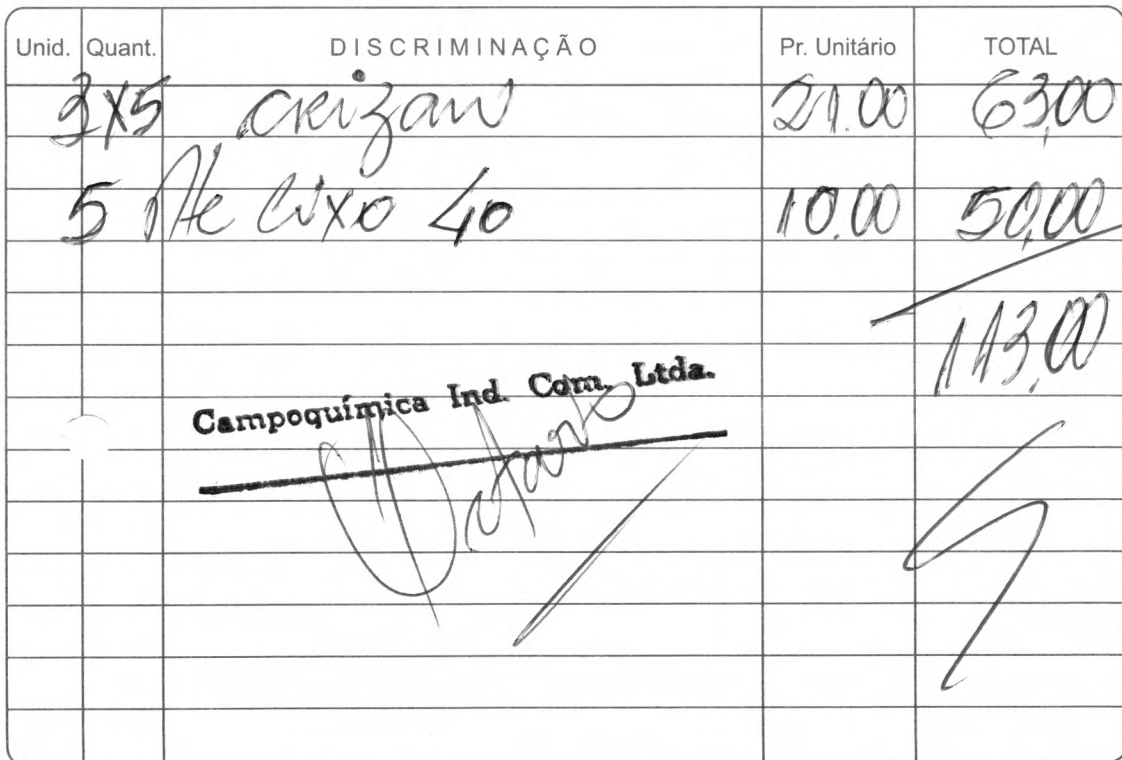 Unid. Quant. DISCRIMINAÇÃO Pr. Unitário TOTAL
3X5 crizan 21.00 63,00
5 Pte Lixo 40 10.00 50,00
113,00
Campoquímica Ind. Com. Ltda.